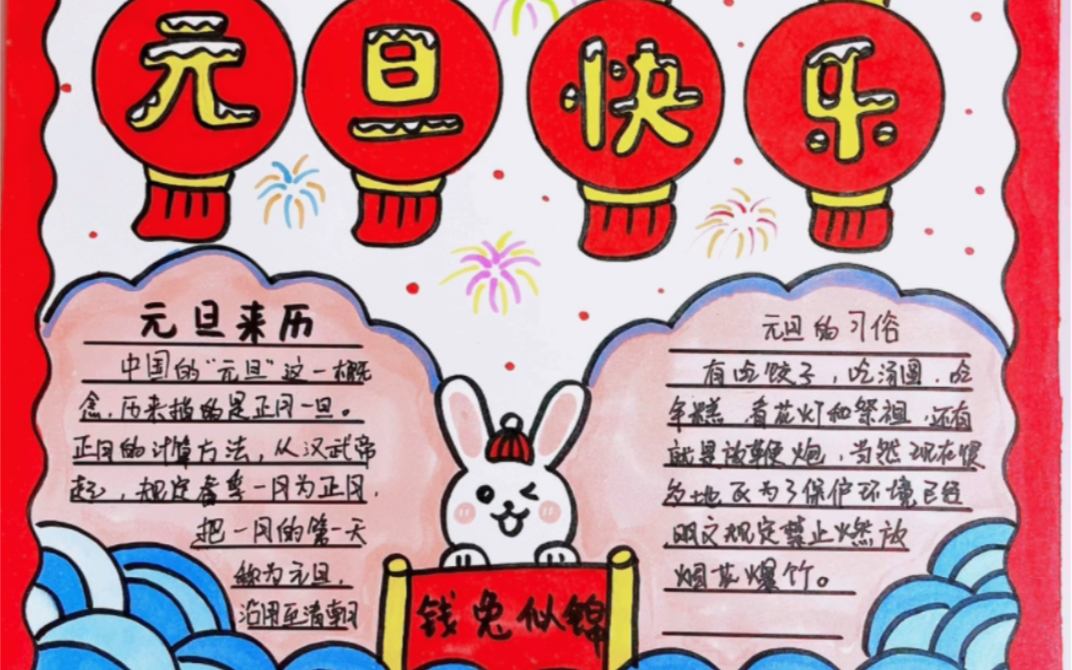 元旦快乐
元旦来历
中国的“元旦”这一概
念,历来指的是正月一旦。
正月的计算方法,从汉武帝
起,规定春季一月为正月,
把一月的第一天
称为元旦,
沿用至清朝
元旦的习俗
有吃饺子,吃汤圆,吃
年糕,看花灯和祭祖,还有
就是放鞭炮,当然现在很
多地区为了保护环境已经
明文规定禁止燃放
烟花爆竹。
钱兔似锦